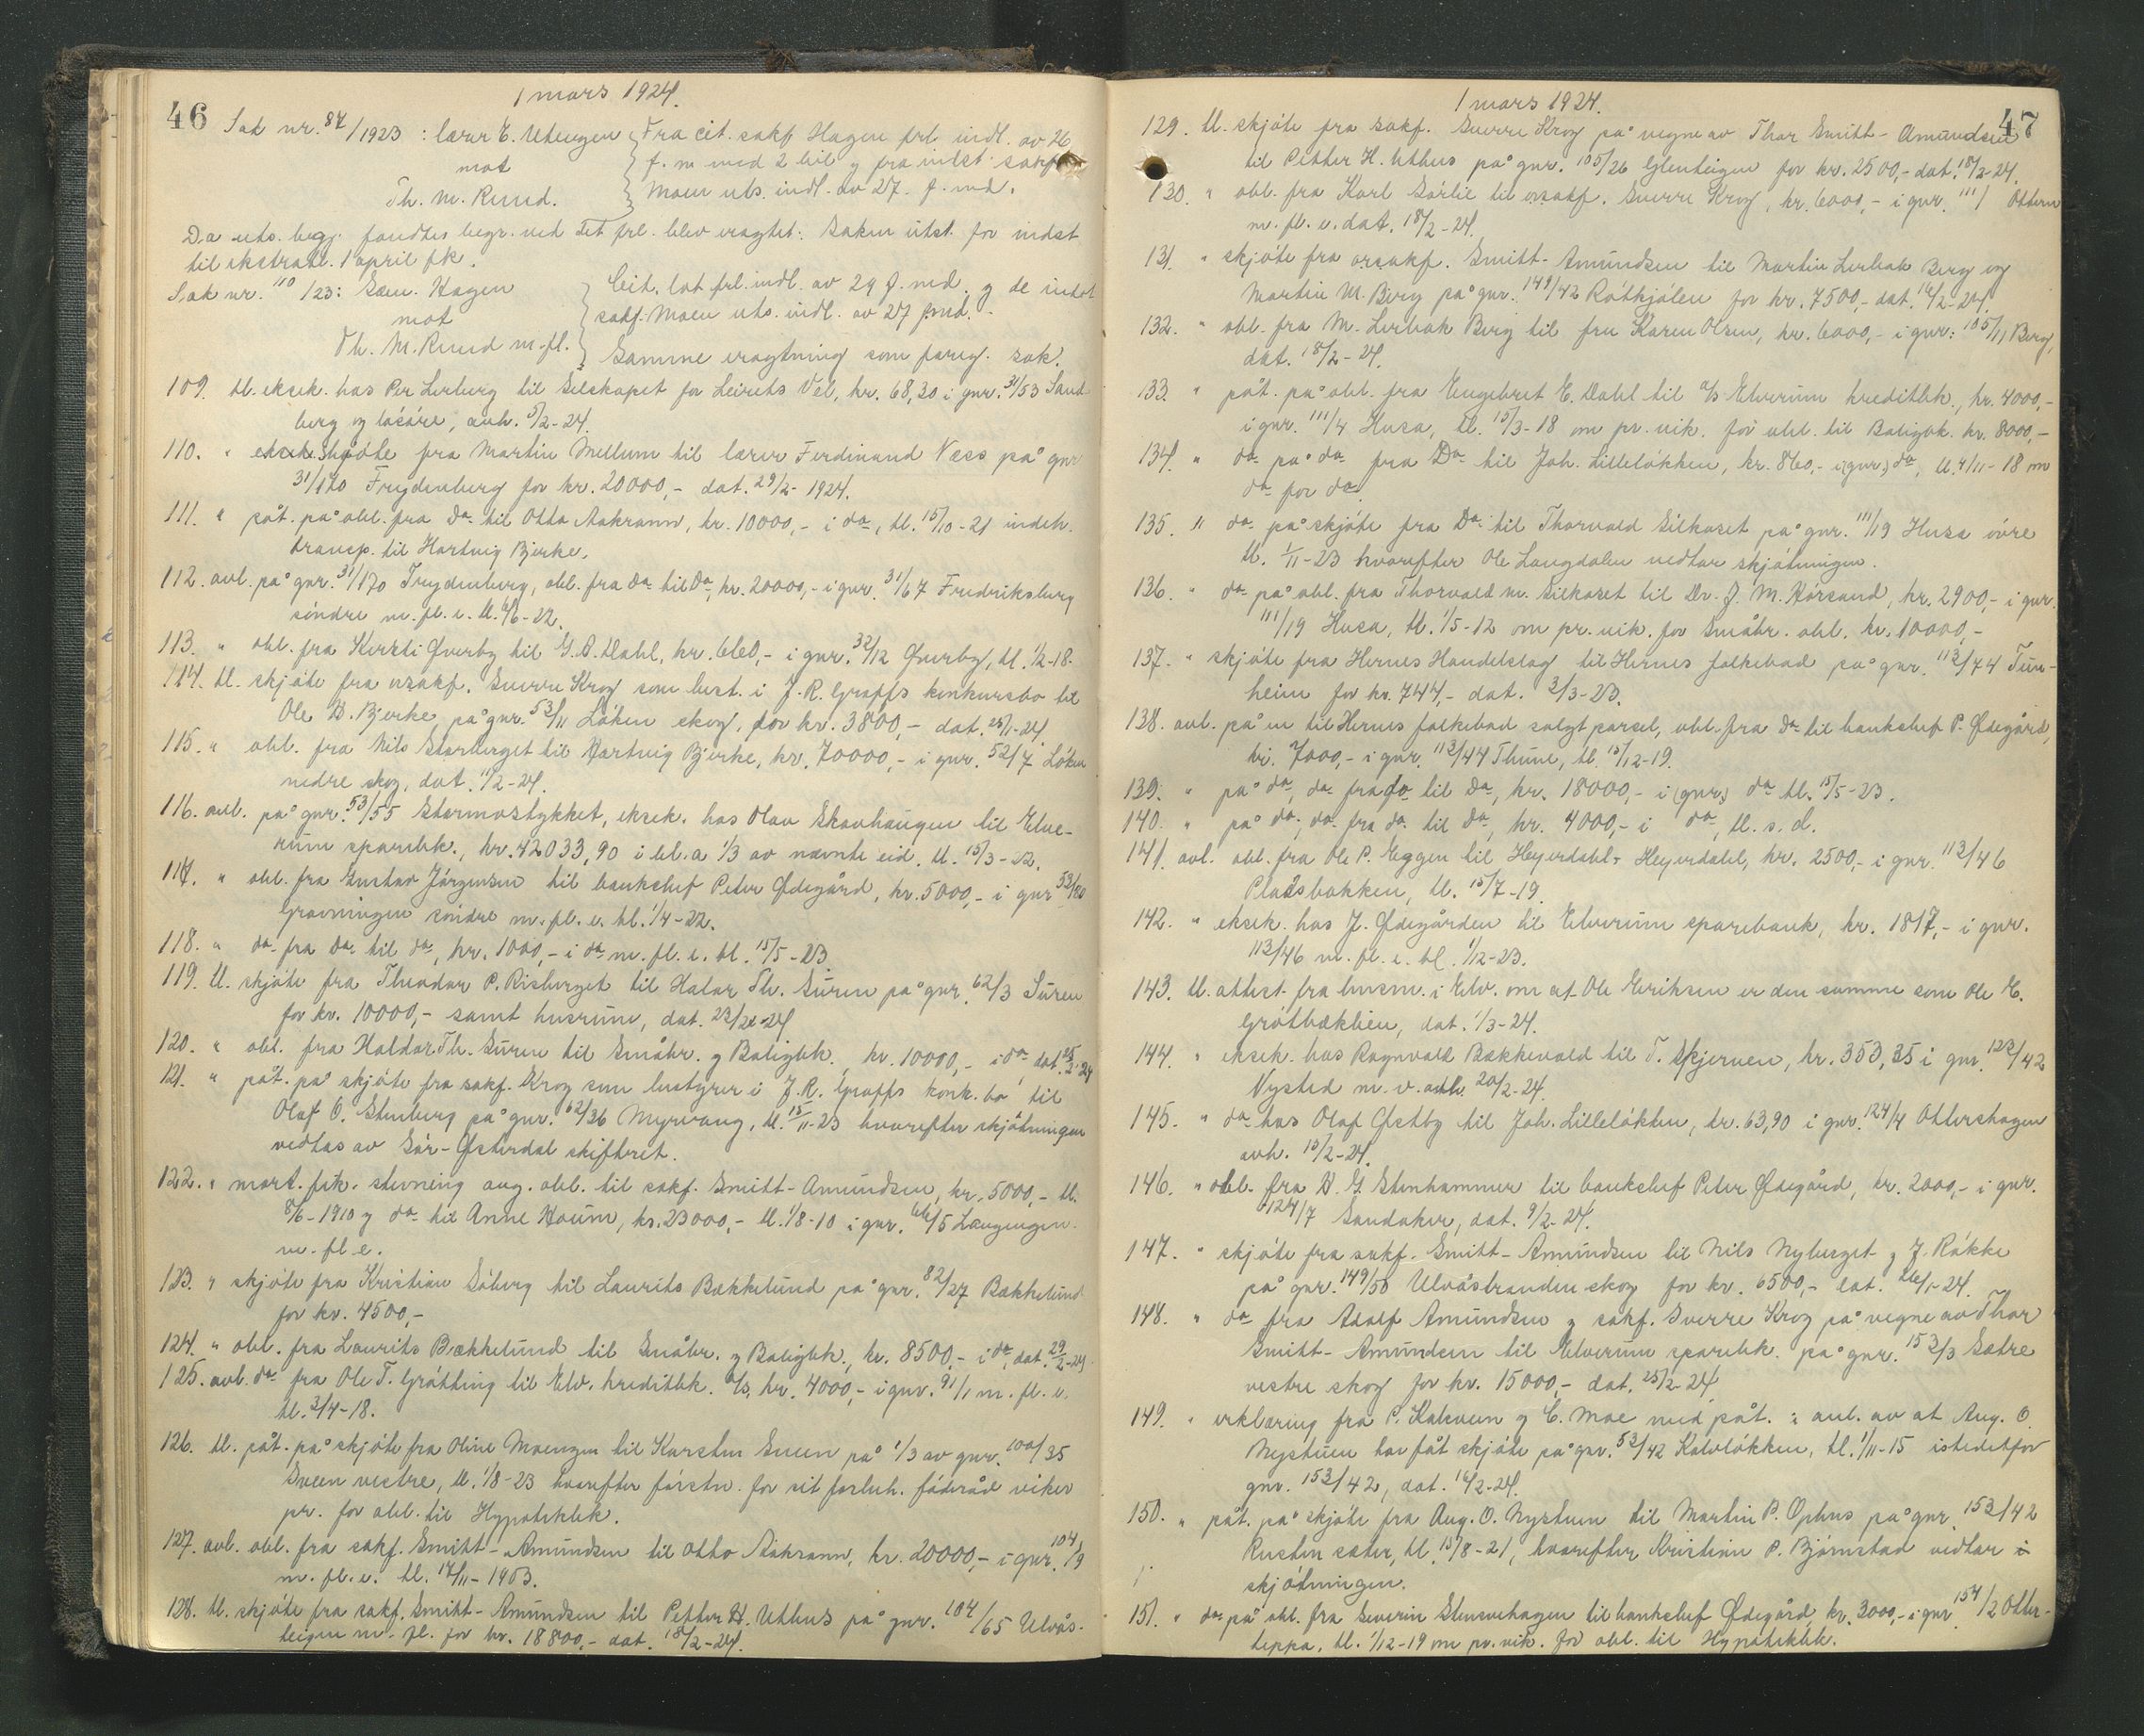 46
1 mars 1924.
Sak nr. 84/1923 : lærer E. Utengen } Fra cit. sakf Hagen frl. indl. av 26
mot } f. m med 2 bil. og fra indst. sakf
Th. M. Ruud. } Moen uts. indl. av 27. f. md.
Da uts. begj. fandtes begr. ved det frl. blev eragtet: Saken utst. for indst
til ekstrart. 1 april fk.
Sak nr. 110/23: Sæm. Hagen } Cit. lot frl. indl. av 29 f. md. og de indst
mot } sakf. Moen uts. indl. av 27 f. md.
Th. M. Ruud m. fl. } Samme eragtning som foreg. sak.
109. tl. eksek. hos Per Lerberg til Selskapet for Leirets Vel, kr. 68,30 i gnr. 31/53 Sand
berg og løsøre, avh. 5/2-24.
110. " skjøte fra Martin Mellum til lærer Ferdinand Næss på gnr
31/170 Frydenberg for kr. 20000,- dat. 29/2-1924.
111. " påt. på obl. fra do til Otto Aakrann, kr. 10000,- i do, tl. 15/10-21 indeh.
transp. til Hartvig Bjerke.
112. avl. på gnr. 31/170 Frydenberg, obl. fra do til do, kr. 20000,- i gnr. 31/67 Fredriksberg
søndre m. fl. e. tl. 6/6-22.
113. " obl. fra Kersti Qverby til G. A. Dahl, kr. 660,- i gnr. 32/12 Qverby, tl. 1/2-18.
114. tl. skjøte fra orsakf. Sverre Krog som best. i J. R. Graffs konkursbo til
Ole D. Bjerke på gnr. 53/11 Løken skog, for kr. 3800,- dat. 25/1-24.
115. " obl. fra Nils Storberget til Hartvig Bjerke, kr. 70000,- i gnr. 52/7 Løken
nedre skog, dat. 1/2-24.
116. avl. på gnr. 53/55 Stormostykket, eksek. hos Olav Skavhaugen til Elve-
rum sparebk., kr. 42033,90 i bl. a 1/3 av nævnte eid. tl. 15/3-22.
117. " obl. fra Gustav Jørgensen til banksjef Peter Ødegård, kr. 5000,- i gnr 53/20
Gravningen søndre m. fl. e. tl. 1/4-22.
118. " do fra do til do, kr. 1000,- i do m. fl. e. tl. 15/5-23.
119. tl. skjøte fra Theodor P. Risberget til Halvor Th. Suren på gnr. 62/3 Suren
for kr. 10000,- samt husrum, dat. 23/2-24
120. " obl. fra Haldor Th. Suren til Småbr. og Boligbk., kr. 10000,- i do dat. 25/2-24
121. " påt. på skjøte fra sakf. Krog som bestyrer i J. R. Graffs konk. bo til
Olaf O. Stenberg på gnr. 62/36 Myrvang, tl. 15/11-23 hvorefter skjøtningen
vedtas av Sør-Østerdal skifteret.
122. " mort. fik. stevning ang. obl. til sakf. Smitt-Amundsen, kr. 5000,- tl.
8/6-1910 og do til Anne Houm, kr. 23000,- tl. 1/8-10 i gnr. 66/5 Langengen
m. fl e.
123. " skjøte fra Kristian Søberg til Laurits Bækkelund på gnr. 82/27 Bækkelund
for kr. 4500,-
124. " obl. fra Laurits Bækkelund til Småbr. og Boligbk., kr. 8500,- i do, dat. 29/2-24.
125. avl. do fra Ole T. Grøtting til Elv. kreditbk. A/S, kr. 4000,- i gnr. 91/1 m. fl. e.
tl. 2/4-18.
126. tl. påt. på skjøte fra Oline Moengen til Karsten Sneen på 1/3 av gnr. 100/35
Sneen vestre, tl. 1/8-23 hvorefter førstn. for sit forbeh. føderåd viker
pr. for obl. til Hypotekbk.
127. avl. obl. fra sakf. Smitt-Amundsen til Otto Aakrann, kr. 20000,- i gnr. 104/9
m. fl. e. tl. 14/11-1903.
128. tl. skjøte fra sakf. Smitt-Amundsen til Petter H. Uthus på gnr. 104/65 Ulvås-
teigen m. fl. for kr. 18800,- dat. 18/2-24.
47
1 mars 1924.
129. tl. skjøte fra sakf. Sverre Krog på vegne av Thor Smitt-Amundsen
til Petter H. Uthus på gnr. 105/26 Glenteigen for kr. 2500,- dat. 18/2-24.
130. " obl. fra Karl Sørlie til orsakf. Sverre Krog, kr. 6000,- i gnr. 111/1 Ottern
m. fl. e. dat. 18/2-24.
131. " skjøte fra orsakf. Smitt-Amundsen til Martin Lerbak Berg og
Martin M. Berg på gnr. 149/42 Råtkjølen for kr. 7500,- dat. 16/2-24.
132. " obl. fra M. Lerbak Berg til fru Karen Olsen, kr. 6000,- i gnr: 105/11 Berg,
dat. 18/2-24.
133. " påt. på obl. fra Engebret E. Dahl til A/S Elverum kreditbk., kr. 4000,-
i gnr. 111/4 Husa, tl. 15/3-18 om pr. vik. for obl. til Boligbk. kr. 8000,-
134. " do på do fra Do til Joh. Lilleløkken, kr. 860,- i (gnr.) do, tl. 4/11-18 om
do for do
135. " do på skjøte fra Do til Thorvald Silkoset på gnr. 111/19 Husa øvre
tl. 1/11-23 hvorefter Ole Langdalen vedtar skjøtningen.
136. " do på obl. fra Thorvald m. Silkoset til Dr. J. M. Kørsand, kr. 2900,- i gnr.
111/19 Husa, tl. 1/5-12 om pr. vik. for Småbr. obl. kr. 10000,-
137. " skjøte fra Hernes Handelslag til Hernes folkebad på gnr. 112/74 Tun-
heim for kr. 744,- dat. 3/3-23.
138. avl. på en til Hernes folkebad solgt parsel, obl. fra do til banksjef P. Ødegård,
kr. 7000,- i gnr. 112/44 Thune, tl. 15/12-19.
139. " på do, do fra do til do, kr. 18000,- i (gnr.) do tl. 15/5-23.
140. " på do, do fra do til do, kr. 4000,- i do, tl. s. d.
141. avl. obl. fra Ole P. Eggen til Heyerdahl & Heyerdahl, kr. 2500,- i gnr. 113/46
Pladsbakken, tl. 15/7-19.
142. " eksek. hos J. Ødegården til Elverum sparebank, kr. 1817,- i gnr.
113/46 m. fl. e. tl. 1/12-23.
143. tl. attest fra lensm. i Elv. om at Ole Eriksen er den samme som Ole E.
Grøtbæklien, dat. 1/3-24.
144. " eksek. hos Ragnvald Bækkevold til T. Skjerven, kr. 353,35 i gnr. 123/42
Nysted m. v. avh. 20/2-24.
145. " do hos Olaf Østby til Joh. Lilleløkken, kr. 63,90 i gnr. 124/4 Ottershagen
avh. 15/2-24.
146. " obl. fra D. G. Stenhammer til banksjef Peter Ødegård, kr. 2000,- i gnr.
124/7 Sandaker, dat. 9/2-24.
147. " skjøte fra sakf. Smitt-Amundsen til Nils Nyberget og J. Røkke
på gnr. 149/50 Ulvåsbranden skog for kr. 6500,- dat. 26/1-24.
148. " do fra Adolf Amundsen og sakf. Sverre Krog på vegne av Thor
Smitt-Amundsen til Elverum sparebk. på gnr. 153/3 Sætre
vestre skog for kr. 15000,- dat. 25/2-24
149. " erklæring fra P. Kalveen og E. Moe med påt. : anl. av at Aug. O.
Nystuen har fåt skjøte på gnr. 53/42 Kalvløkken, tl. 1/11-15 istedetfor
gnr. 153/42, dat. 16/2-24.
150. " påt. på skjøte fra Aug. O. Nystuen til Martin P. Ophus på gnr. 153/42
Rusten sæter, tl. 15/8-21, hvorefter Kristian P. Bjørnstad vedtar
skjøtningen.
151. " do på obl. fra Severin Stensvehagen til banksjef Ødegård, kr. 3000,- i gnr 154/2 Otter-
teppa, tl. 1/12-19 om pr. vik. for obl. til Hypotekbk.